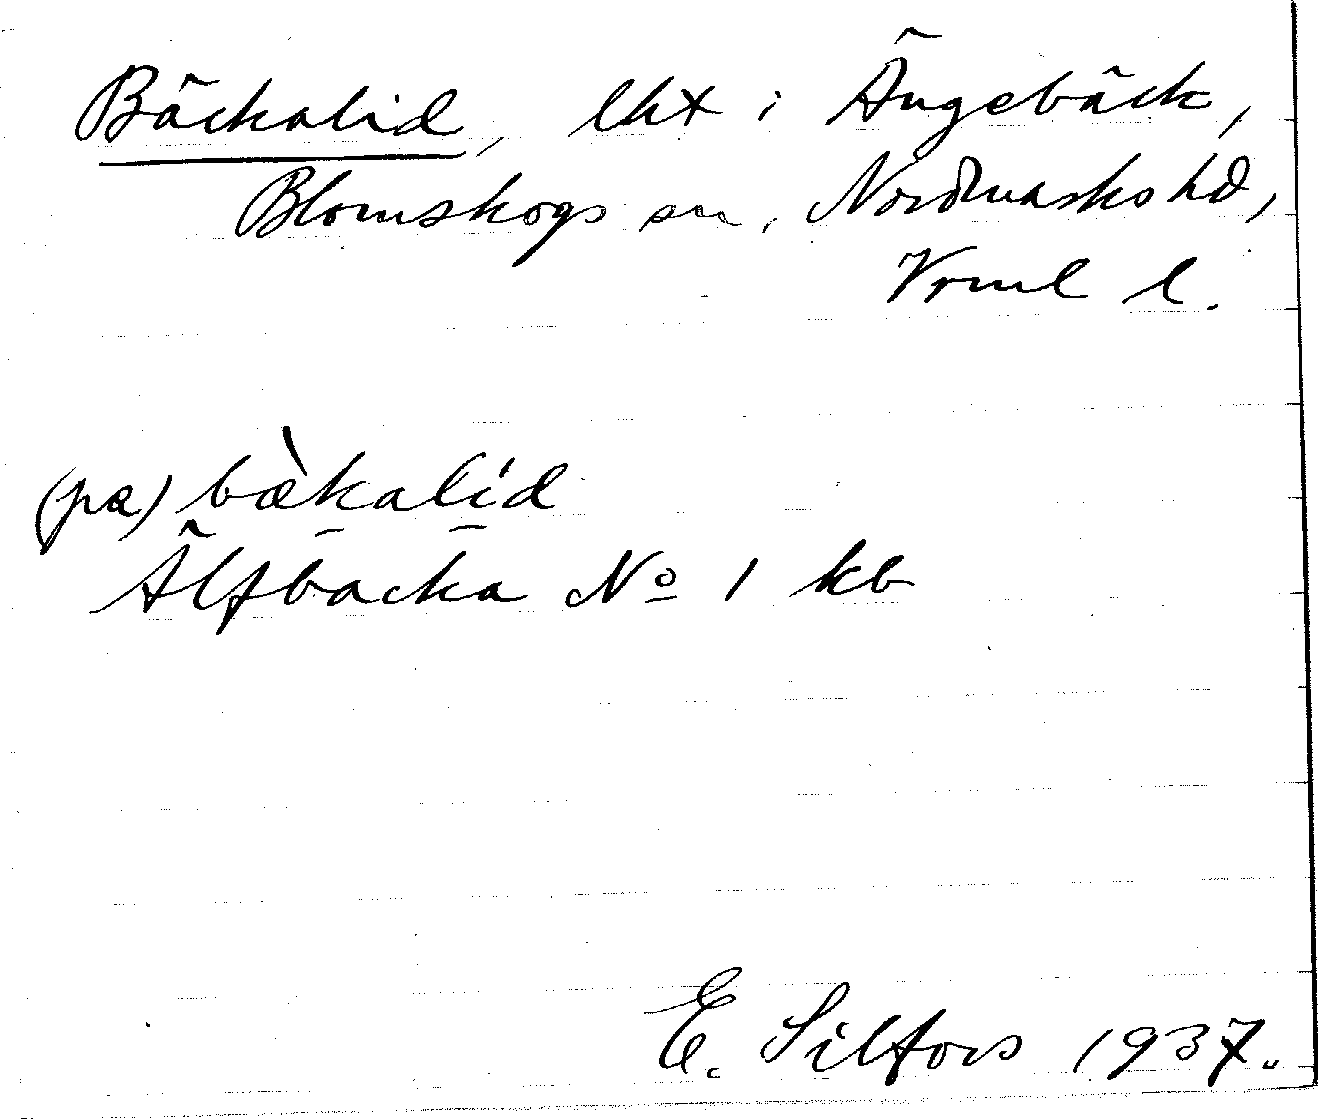 Bäckalid, lht i Ängebäck,
Blomskogs sn, Nordmarks hd,
Vrml l.
(pa) bæ̀kalíd
Älfbacka No 1 kb
E. Silfors 1937.